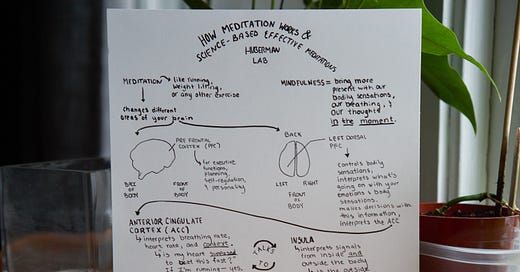 HOW MEDITATION WORKS &
SCIENCE-BASED EFFECTIVE MEDITATIONS
HUBERMAN
LAB
MEDITATION → like running,
weight lifting,
or any other exercise
Changes different
areas of your brain
MINDFULNESS = being more
present with our
bodily sensations,
our breathing, &
our thoughts
in the moment.
PRE FRONTAL
CORTEX (PFC)
↳ for executive
functions,
planning,
self-regulation,
& personality
BACK OF
BODY
FRONT OF
BODY
BACK
LEFT
RIGHT
FRONT
OF
BODY
LEFT DORSAL
PFC
controls bodily
sensations,
interprets what's
going on with your
emotions & body
sensations.
makes decisions with
this information,
interprets the ACC
ANTERIOR CINGULATE
CORTEX (ACC)
↳ interprets breathing rate,
heart rate, and context.
↳ is my heart supposed
to beat this fast?
If I'm running— yes,
TALKS
TO
INSULA
↳ interprets signals
from inside and
outside the body
is the outside